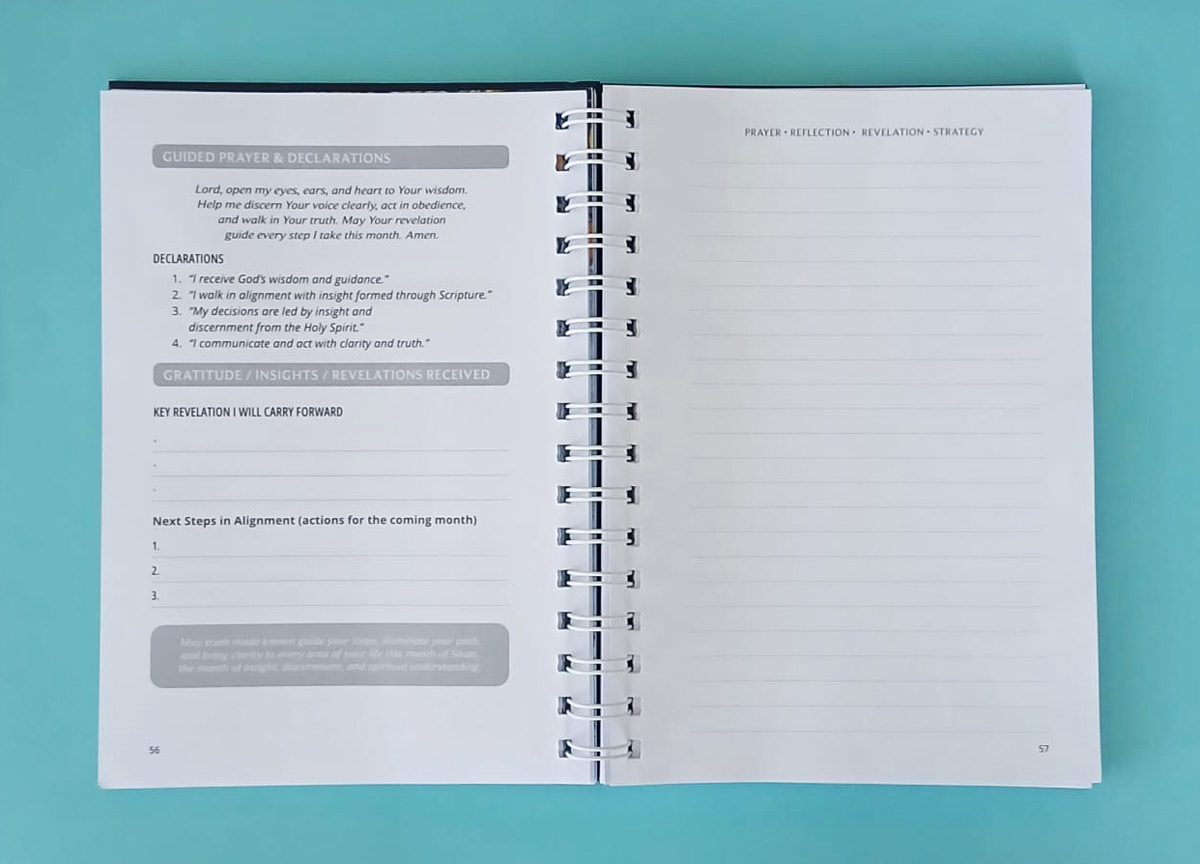 GUIDED PRAYER & DECLARATIONS
Lord, open my eyes, ears, and heart to Your wisdom.
Help me discern Your voice clearly, act in obedience,
and walk in Your truth. May Your revelation
guide every step I take this month. Amen.
DECLARATIONS
1. "I receive God's wisdom and guidance."
2. "I walk in alignment with insight formed through Scripture."
3. "My decisions are led by insight and
discernment from the Holy Spirit."
4. "I communicate and act with clarity and truth."
GRATITUDE / INSIGHTS / REVELATIONS RECEIVED
KEY REVELATION I WILL CARRY FORWARD
.
.
.
Next Steps in Alignment (actions for the coming month)
1.
2.
3.
May truth made known guide your steps, illuminate your path,
and bring clarity to every area of your life this month of Sivan,
the month of insight, discernment, and spiritual understanding.
56
PRAYER • REFLECTION • REVELATION • STRATEGY
57